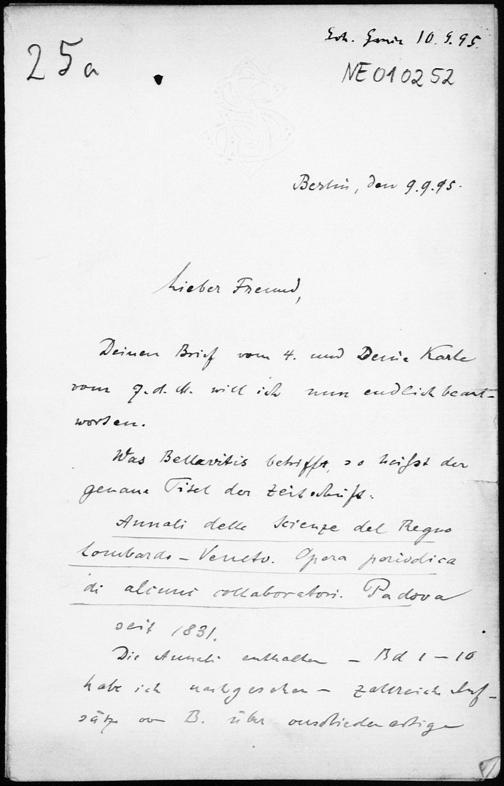 10.9.95
25a
NE010252
Berlin, den 9.9.95.
Lieber Freund,
Deinen Brief vom 4. und Deine Karte
vom 7. d. M. will ich nun endlich beant-
worten.
Was Bellavitis betrifft, so heißt der
genaue Titel der Zeitschrift:
Annali delle Scienze del Regno
Lombardo-Veneto. Opera periodica
di alcuni collaboratori. Padova
seit 1831.
Die Annali enthalten – Bd 1–10
habe ich nachgesehen – zahlreiche Auf-
sätze von B. über verschiedenartige